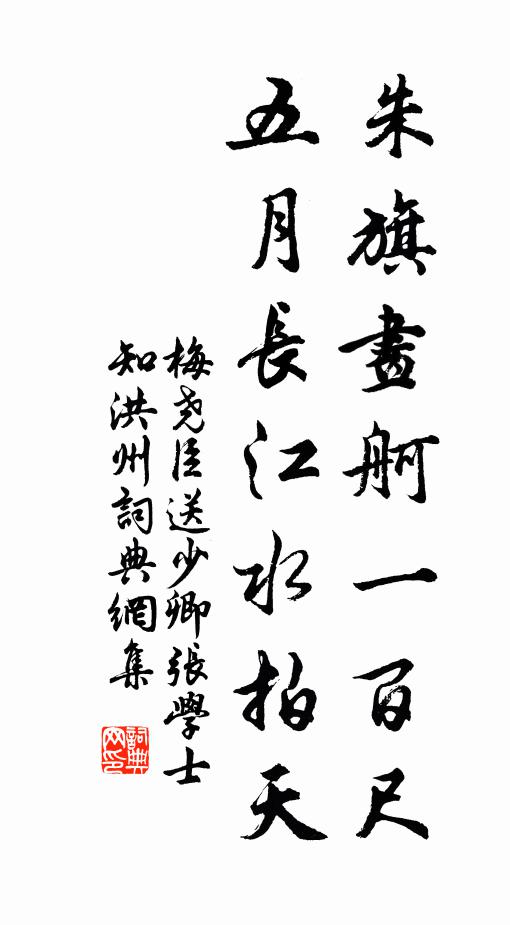 朱旗畫舸一百尺
五月長江水拍天
梅尧臣送少卿張學士
知洪州詞典網集
詞典網印